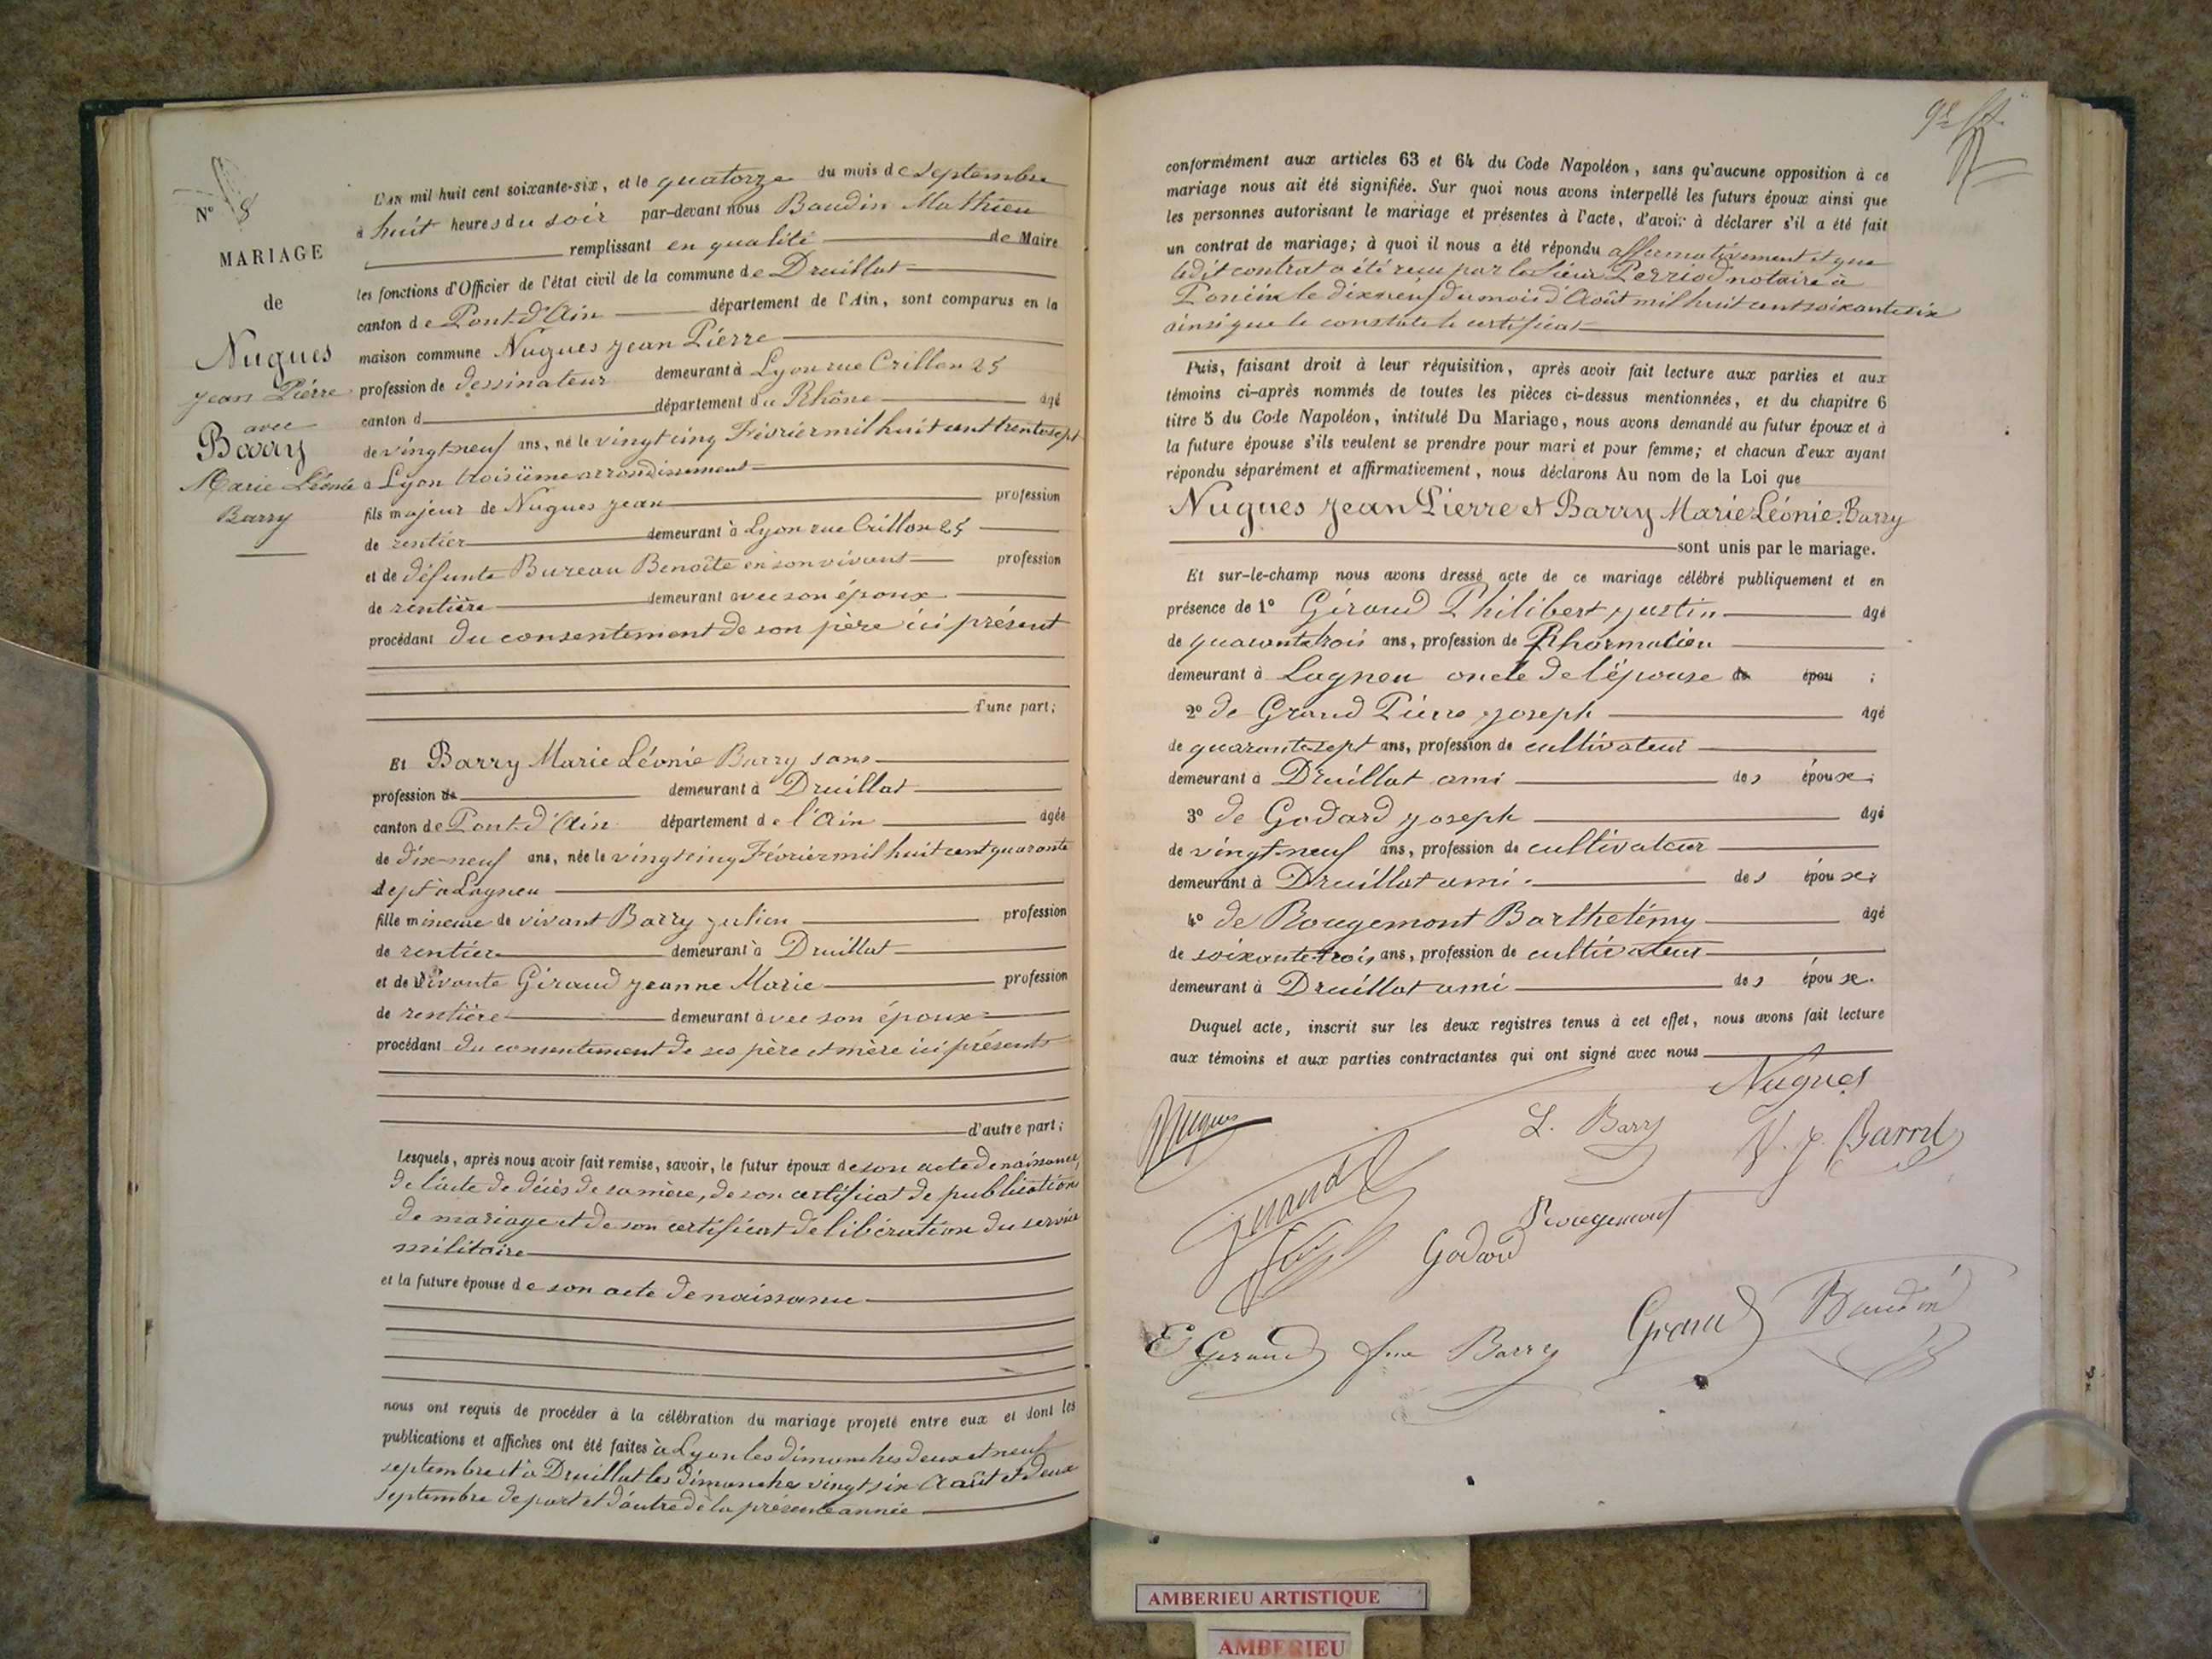 N° 8
MARIAGE
de
Nugues
Jean Pierre
avec
Barry
Marie Léonie
Barry
L'an mil huit cent soixante-six, et le quatorze du mois de Septembre
à huit heures du soir par-devant nous Baudin Mathieu
remplissant en qualité de Maire
les fonctions d'Officier de l'état civil de la commune de Druillat
canton de Pont-d'Ain département de l'Ain, sont comparus en la
maison commune Nugues Jean Pierre
profession de dessinateur demeurant à Lyon rue Crillon 25
canton d département du Rhône âgé
de vingt-neuf ans, né le vingt cinq Février mil huit cent trente sept
à Lyon troisième arrondissement
fils majeur de Nugues Jean profession
de rentier demeurant à Lyon rue Crillon 25
et de défunte Bureau Benoîte en son vivant profession
de rentière demeurant avec son époux
procédant du consentement de son père ici présent
d'une part;
Et Barry Marie Léonie Barry sans
profession de demeurant à Druillat
canton de Pont-d'Ain département de l'Ain âgée
de dix-neuf ans, née le vingt cinq Février mil huit cent quarante
sept à Lagneu
fille mineure de vivant Barry Julien profession
de rentier demeurant à Druillat
et de vivante Giraud Jeanne Marie profession
de rentière demeurant avec son époux
procédant du consentement de ses père et mère ici présents
d'autre part;
Lesquels, après nous avoir fait remise, savoir, le futur époux de son acte de naissance,
de l'acte de décès de sa mère, de son certificat de publications
de mariage et de son certificat de libération du service
militaire
et la future épouse de son acte de naissance
nous ont requis de procéder à la célébration du mariage projeté entre eux et dont les
publications et affiches ont été faites à Lyon les dimanches deux et neuf
septembre et à Druillat les dimanche vingt six Août et deux
Septembre de part et d'autre de la présente année
conformément aux articles 63 et 64 du Code Napoléon, sans qu'aucune opposition à ce
mariage nous ait été signifiée. Sur quoi nous avons interpellé les futurs époux ainsi que
les personnes autorisant le mariage et présentes à l'acte, d'avoir à déclarer s'il a été fait
un contrat de mariage; à quoi il nous a été répondu affirmativement et que
ledit contrat a été reçu par le Sieur Perriod notaire à
Poncin le dix neuf du mois d'Août mil huit cent soixante six
ainsi que le constate le certificat
Puis, faisant droit à leur réquisition, après avoir fait lecture aux parties et aux
témoins ci-après nommés de toutes les pièces ci-dessus mentionnées, et du chapitre 6
titre 5 du Code Napoléon, intitulé Du Mariage, nous avons demandé au futur époux et à
la future épouse s'ils veulent se prendre pour mari et pour femme; et chacun d'eux ayant
répondu séparément et affirmativement, nous déclarons Au nom de la Loi que
Nugues Jean Pierre et Barry Marie Léonie Barry
sont unis par le mariage.
Et sur-le-champ nous avons dressé acte de ce mariage célébré publiquement et en
présence de 1° Giraud Philibert Justin âgé
de quarante trois ans, profession de Pharmacien
demeurant à Lagneu oncle de l'épouse de épou ;
2° de Grand Pierre Joseph âgé
de quarante sept ans, profession de cultivateur
demeurant à Druillat ami des époux;
3° de Godard Joseph âgé
de vingt-neuf ans, profession de cultivateur
demeurant à Druillat ami des époux;
4° de Rougemont Barthelémy âgé
de soixante trois ans, profession de cultivateur
demeurant à Druillat ami des époux.
Duquel acte, inscrit sur les deux registres tenus à cet effet, nous avons fait lecture
aux témoins et aux parties contractantes qui ont signé avec nous
Nugues
Nugues
L. Barry
Barry
Giraud
Rougemont
Godard
Giraud fme Barry
Grand
Baudin
AMBERIEU ARTISTIQUE
AMBERIEU